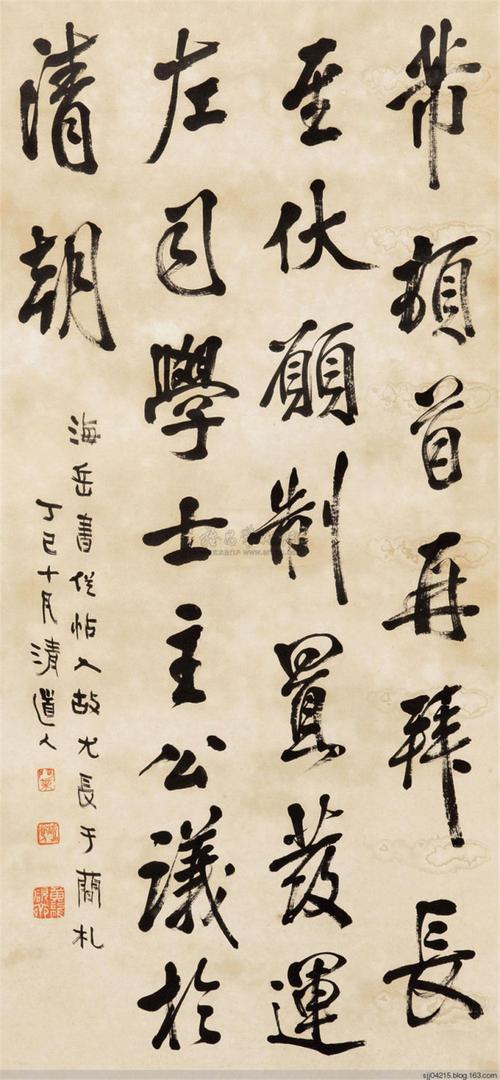 芾頓首再拜長
至伏願制置發運
左司學士主公議於
清朝
海岳書從帖入故尤長于簡札
丁巳十月清道人
sjj04215.blog.163.com